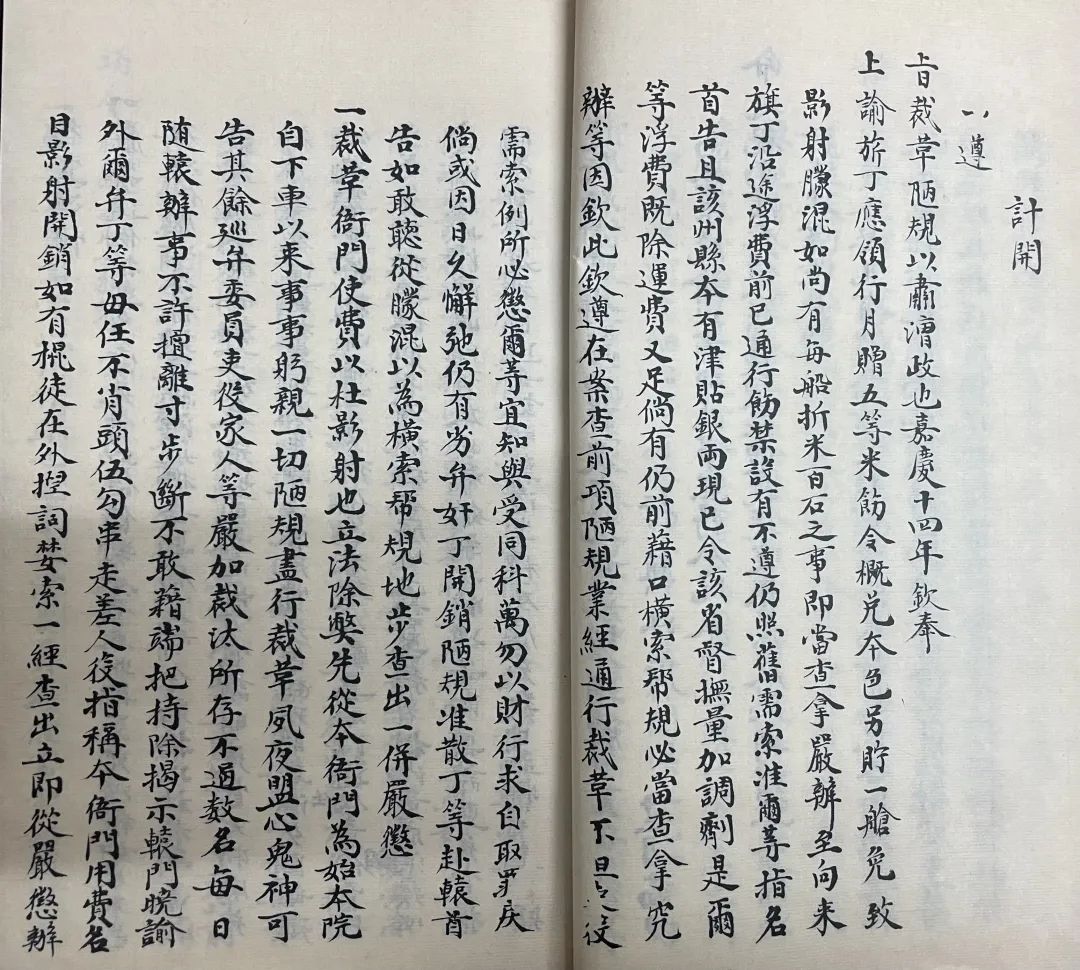 計開
一遵
旨裁革陋規以肅漕政也嘉慶十四年欽奉
上諭旂丁應領行月贈五等米飭令概兌本色另貯一艙免致
影射朦混如尚有每船折米百石之事即當查拿嚴辦至向来
旗丁沿途浮費前已通行飭禁設有不遵仍照舊需索准爾等指名
首告且該州縣夲有津貼銀両現已令該省督撫量加調劑是爾
等浮費既除運費又足倘有仍前藉口橫索帮規必當查拿究
辦等因欽此欽遵在案查前項陋規業經通行裁革不但 役
需索例所必懲爾等宜知與受同科萬勿以財行求自取罪戾
倘或因日久懈弛仍有劣弁奸丁開銷陋規准散丁等赴轅首
告如敢聽從朦混以為橫索帮規地步查出一併嚴懲
一裁革衙門使費以杜影射也立法除獘先從夲衙門為始本院
自下車以来事事躬親一切陋規盡行裁革夙夜盟心鬼神可
告其餘巡弁委員吏役家人等嚴加裁汰所存不過数名每日
随轅辦事不許擅離寸步斷不敢藉端把持除揭示轅門曉諭
外爾弁丁等毋任不肖頭伍勾串走差人役指稱夲衙門用費名
目影射開銷如有棍徒在外揑詞婪索一經查出立即從嚴懲辦